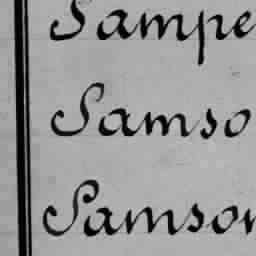 Sampe
Samso
Samson